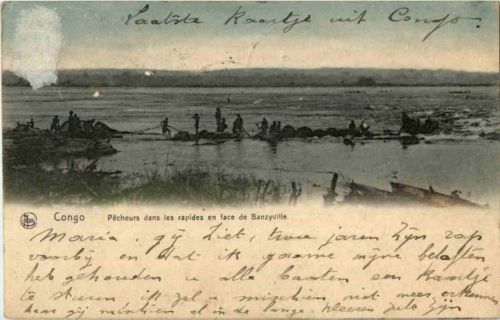 Laatste kaartje uit Congo.
Congo Pêcheurs dans les rapides en face de Banzyville.
Maria, gÿ ziet, twee jaren zÿn rap
voorby en dat ik gaarne mÿne beloften
heb gehouden u alle baoten een kaartje
te sturen ik zal u misschien niet meer erkennen
daar gÿ misschien al in de lange kleeren zult zÿn